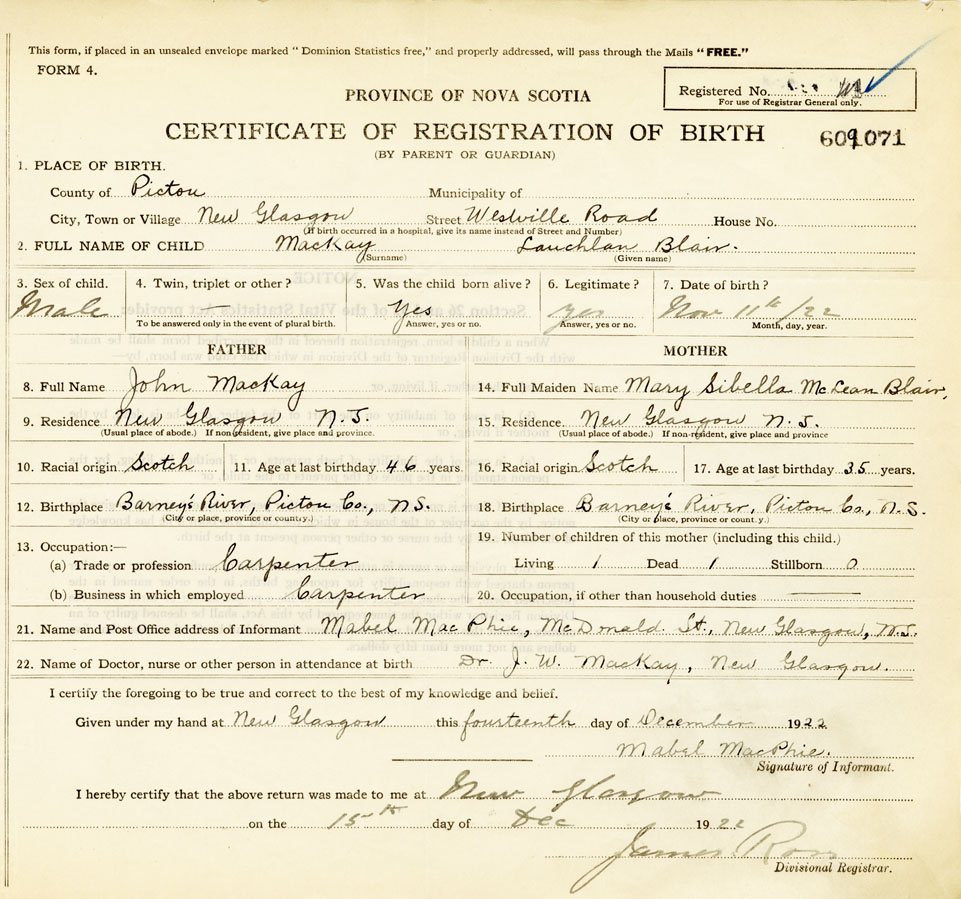 This form, if placed in an unsealed envelope marked "Dominion Statistics free," and properly addressed, will pass through the Mails "FREE."
FORM 4.
Registered No.
For use of Registrar General only.
PROVINCE OF NOVA SCOTIA
CERTIFICATE OF REGISTRATION OF BIRTH
609071
(BY PARENT OR GUARDIAN)
1. PLACE OF BIRTH.
County of Pictou Municipality of
City, Town or Village New Glasgow Street Westville Road House No.
(If birth occurred in a hospital, give its name instead of Street and Number)
2. FULL NAME OF CHILD MacKay Lauchlan Blair.
(Surname) (Given name)
3. Sex of child. 4. Twin, triplet or other? 5. Was the child born alive? 6. Legitimate? 7. Date of birth?
Male — Yes yes Nov 11th /22
To be answered only in the event of plural birth. Answer, yes or no. Answer, yes or no. Month, day, year.
FATHER MOTHER
8. Full Name John MacKay 14. Full Maiden Name Mary Sibella McLean Blair,
9. Residence New Glasgow N.S. 15. Residence. New Glasgow N.S.
(Usual place of abode.) If non-resident, give place and province. (Usual place of abode.) If non-resident, give place and province
10. Racial origin Scotch 11. Age at last birthday 46 years. 16. Racial origin Scotch 17. Age at last birthday 35 years.
12. Birthplace Barney's River, Pictou Co., N.S. 18. Birthplace Barney's River, Pictou Co., N.S.
(City or place, province or country.) (City or place, province or county.)
13. Occupation:— 19. Number of children of this mother (including this child.)
(a) Trade or profession Carpenter Living 1 Dead 1 Stillborn 0
(b) Business in which employed Carpenter 20. Occupation, if other than household duties ——
21. Name and Post Office address of Informant Mabel MacPhie, McDonald St., New Glasgow, N.S.
22. Name of Doctor, nurse or other person in attendance at birth Dr. J. W. MacKay, New Glasgow.
I certify the foregoing to be true and correct to the best of my knowledge and belief.
Given under my hand at New Glasgow this fourteenth day of December 1922
Mabel MacPhie.
Signature of Informant.
I hereby certify that the above return was made to me at New Glasgow
on the 15th day of Dec 1922
James Ross
Divisional Registrar.